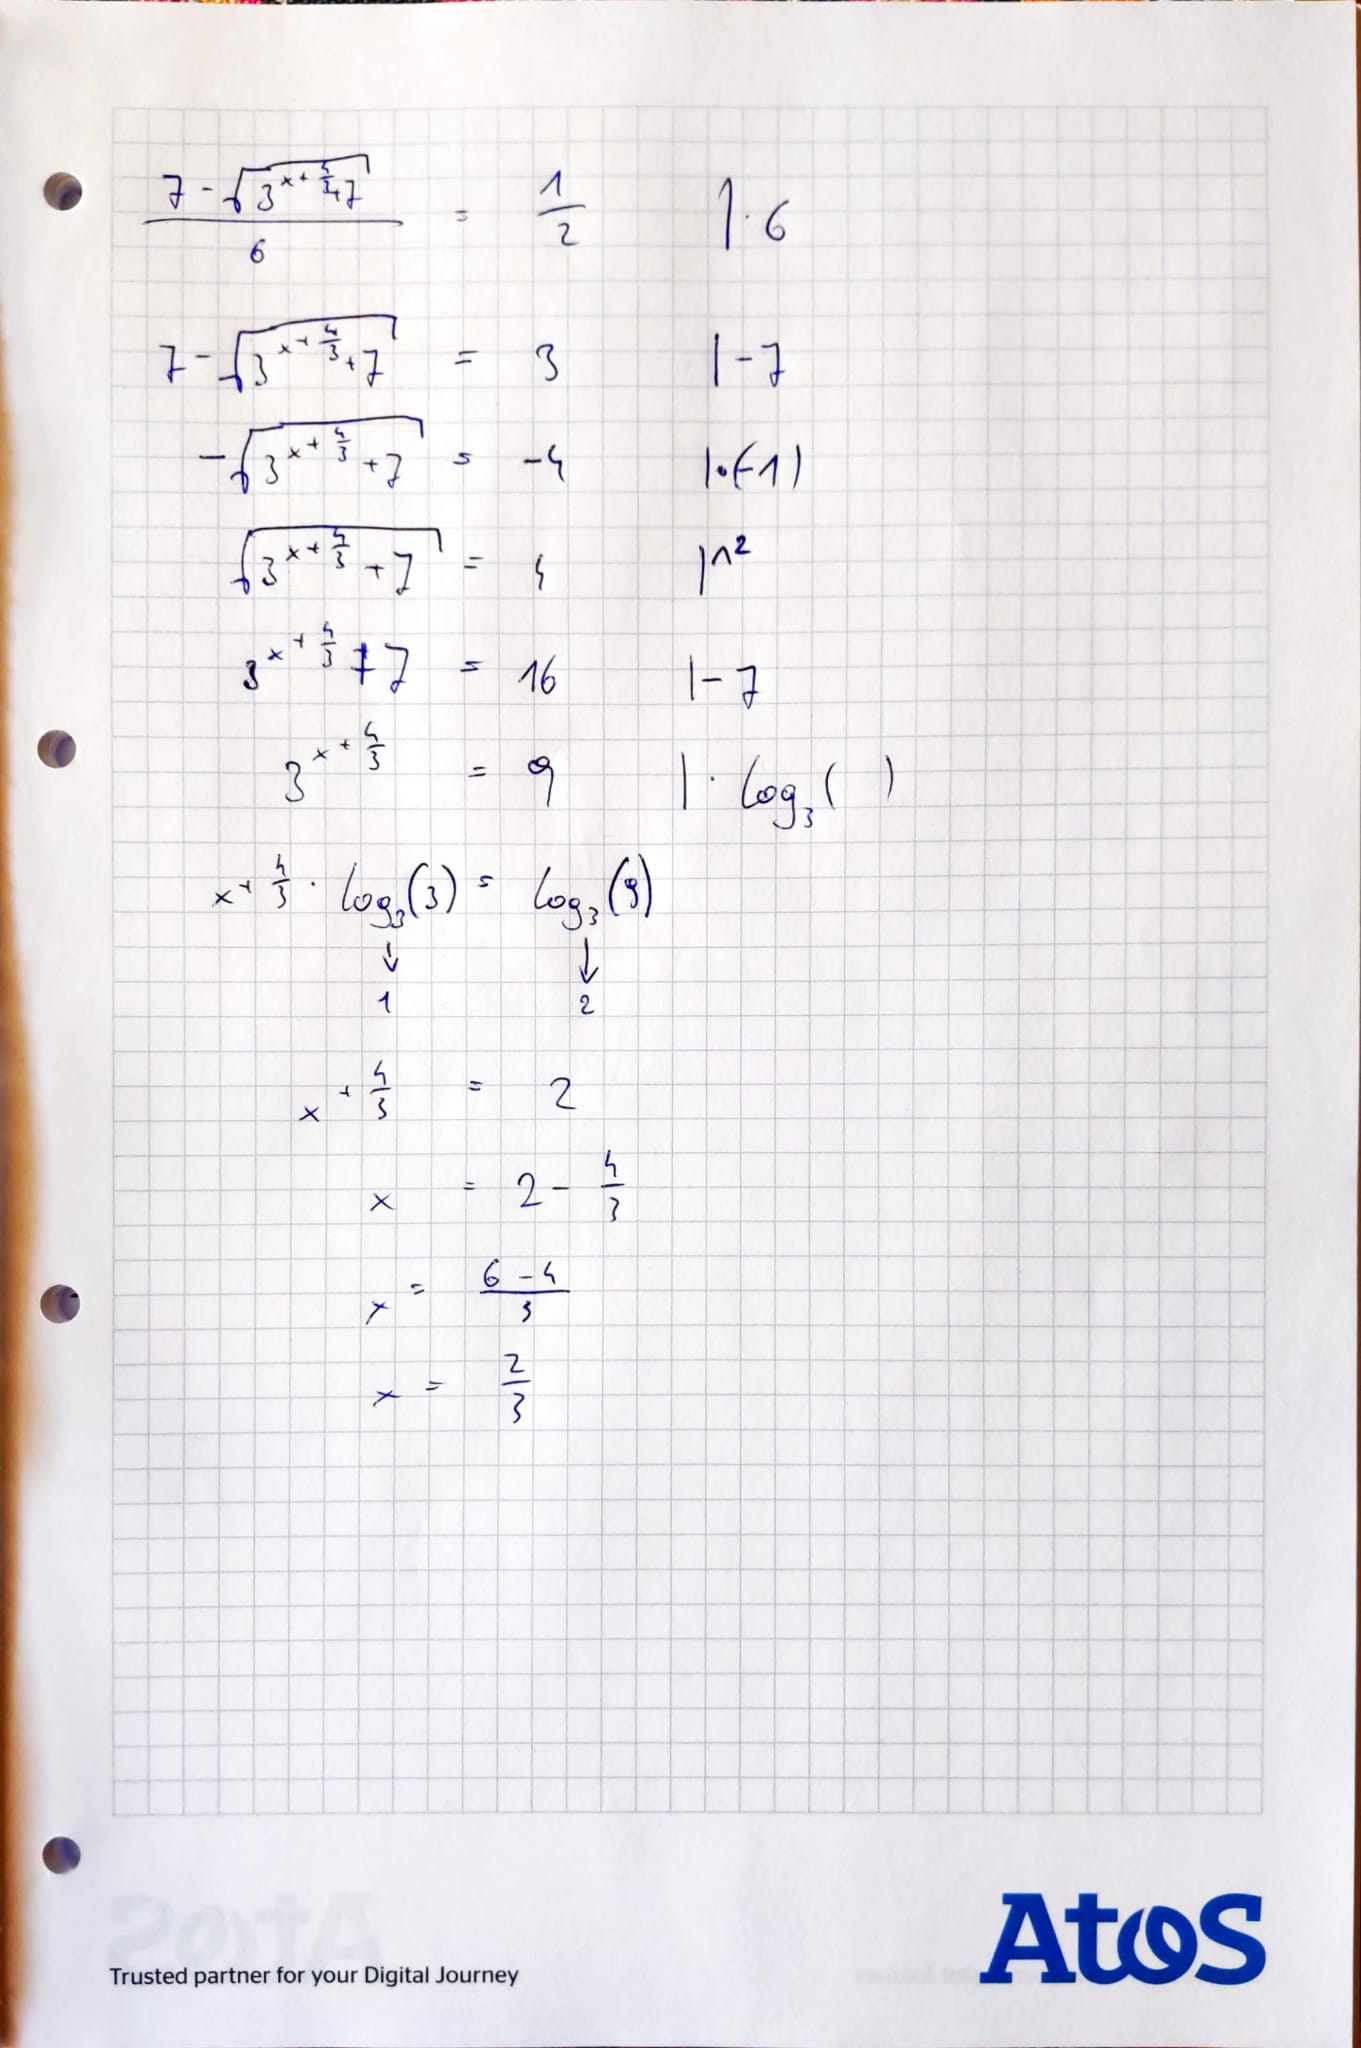 (7 - √(3^(x + 4/3) + 7))/6 = 1/2 | · 6
7 - √(3^(x + 4/3) + 7) = 3 | - 7
- √(3^(x + 4/3) + 7) = -4 | · (-1)
√(3^(x + 4/3) + 7) = 4 | ^2
3^(x + 4/3) + 7 = 16 | - 7
3^(x + 4/3) = 9 | · log₃( )
x + 4/3 · log₃(3) = log₃(9)
↓ ↓
1 2
x + 4/3 = 2
x = 2 - 4/3
x = (6 - 4)/3
x = 2/3
Trusted partner for your Digital Journey
Atos